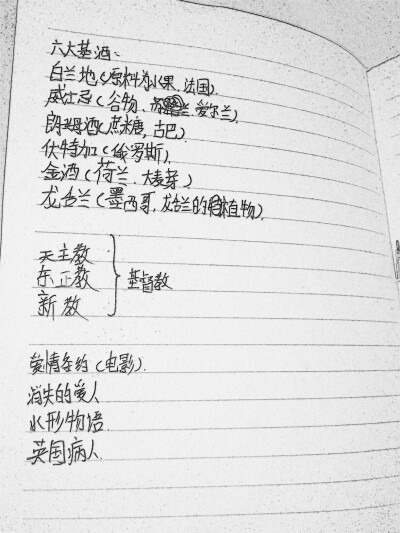 六大基酒：
白兰地(原料为水果、法国)
威士忌(谷物、苏格兰、爱尔兰)
朗姆酒(蔗糖,古巴)
伏特加(俄罗斯)
金酒(荷兰、大麦芽)
龙舌兰(墨西哥,龙舌兰的植物)
天主教
东正教
新教
基督教
爱情条约(电影)
消失的爱人
水形物语
英国病人